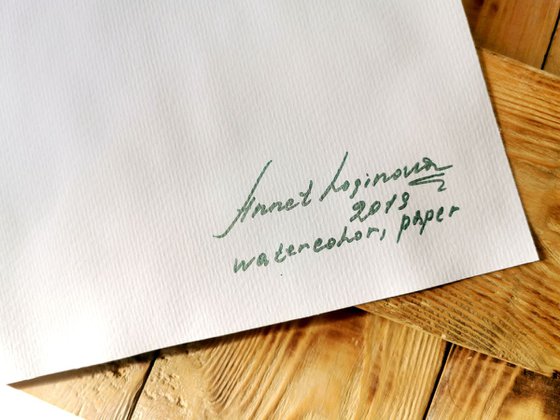 Annet Loginova
2019
watercolor, paper